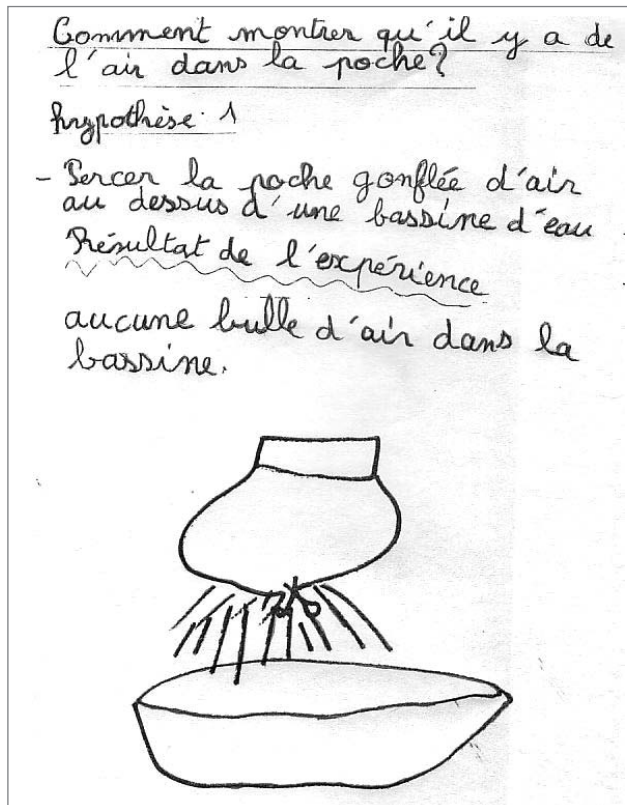 Comment montrer qu'il y a de
l'air dans la poche?
hypothèse. 1
- Percer la poche gonflée d'air
au dessus d'une bassine d'eau
Résultat de l'expérience
aucune bulle d'air dans la
bassine.